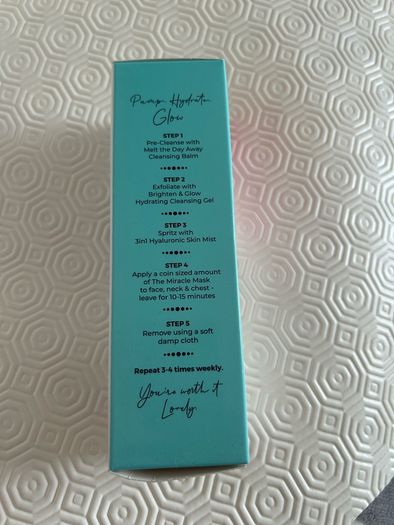 Pamper, Hydrate,
Glow
STEP 1
Pre-Cleanse with
Melt the Day Away
Cleansing Balm
STEP 2
Exfoliate with
Brighten & Glow
Hydrating Cleansing Gel
STEP 3
Spritz with
3in1 Hyaluronic Skin Mist
STEP 4
Apply a coin sized amount
of The Miracle Mask
to face, neck & chest -
leave for 10-15 minutes
STEP 5
Remove using a soft
damp cloth
Repeat 3-4 times weekly.
You're worth it
Lovely